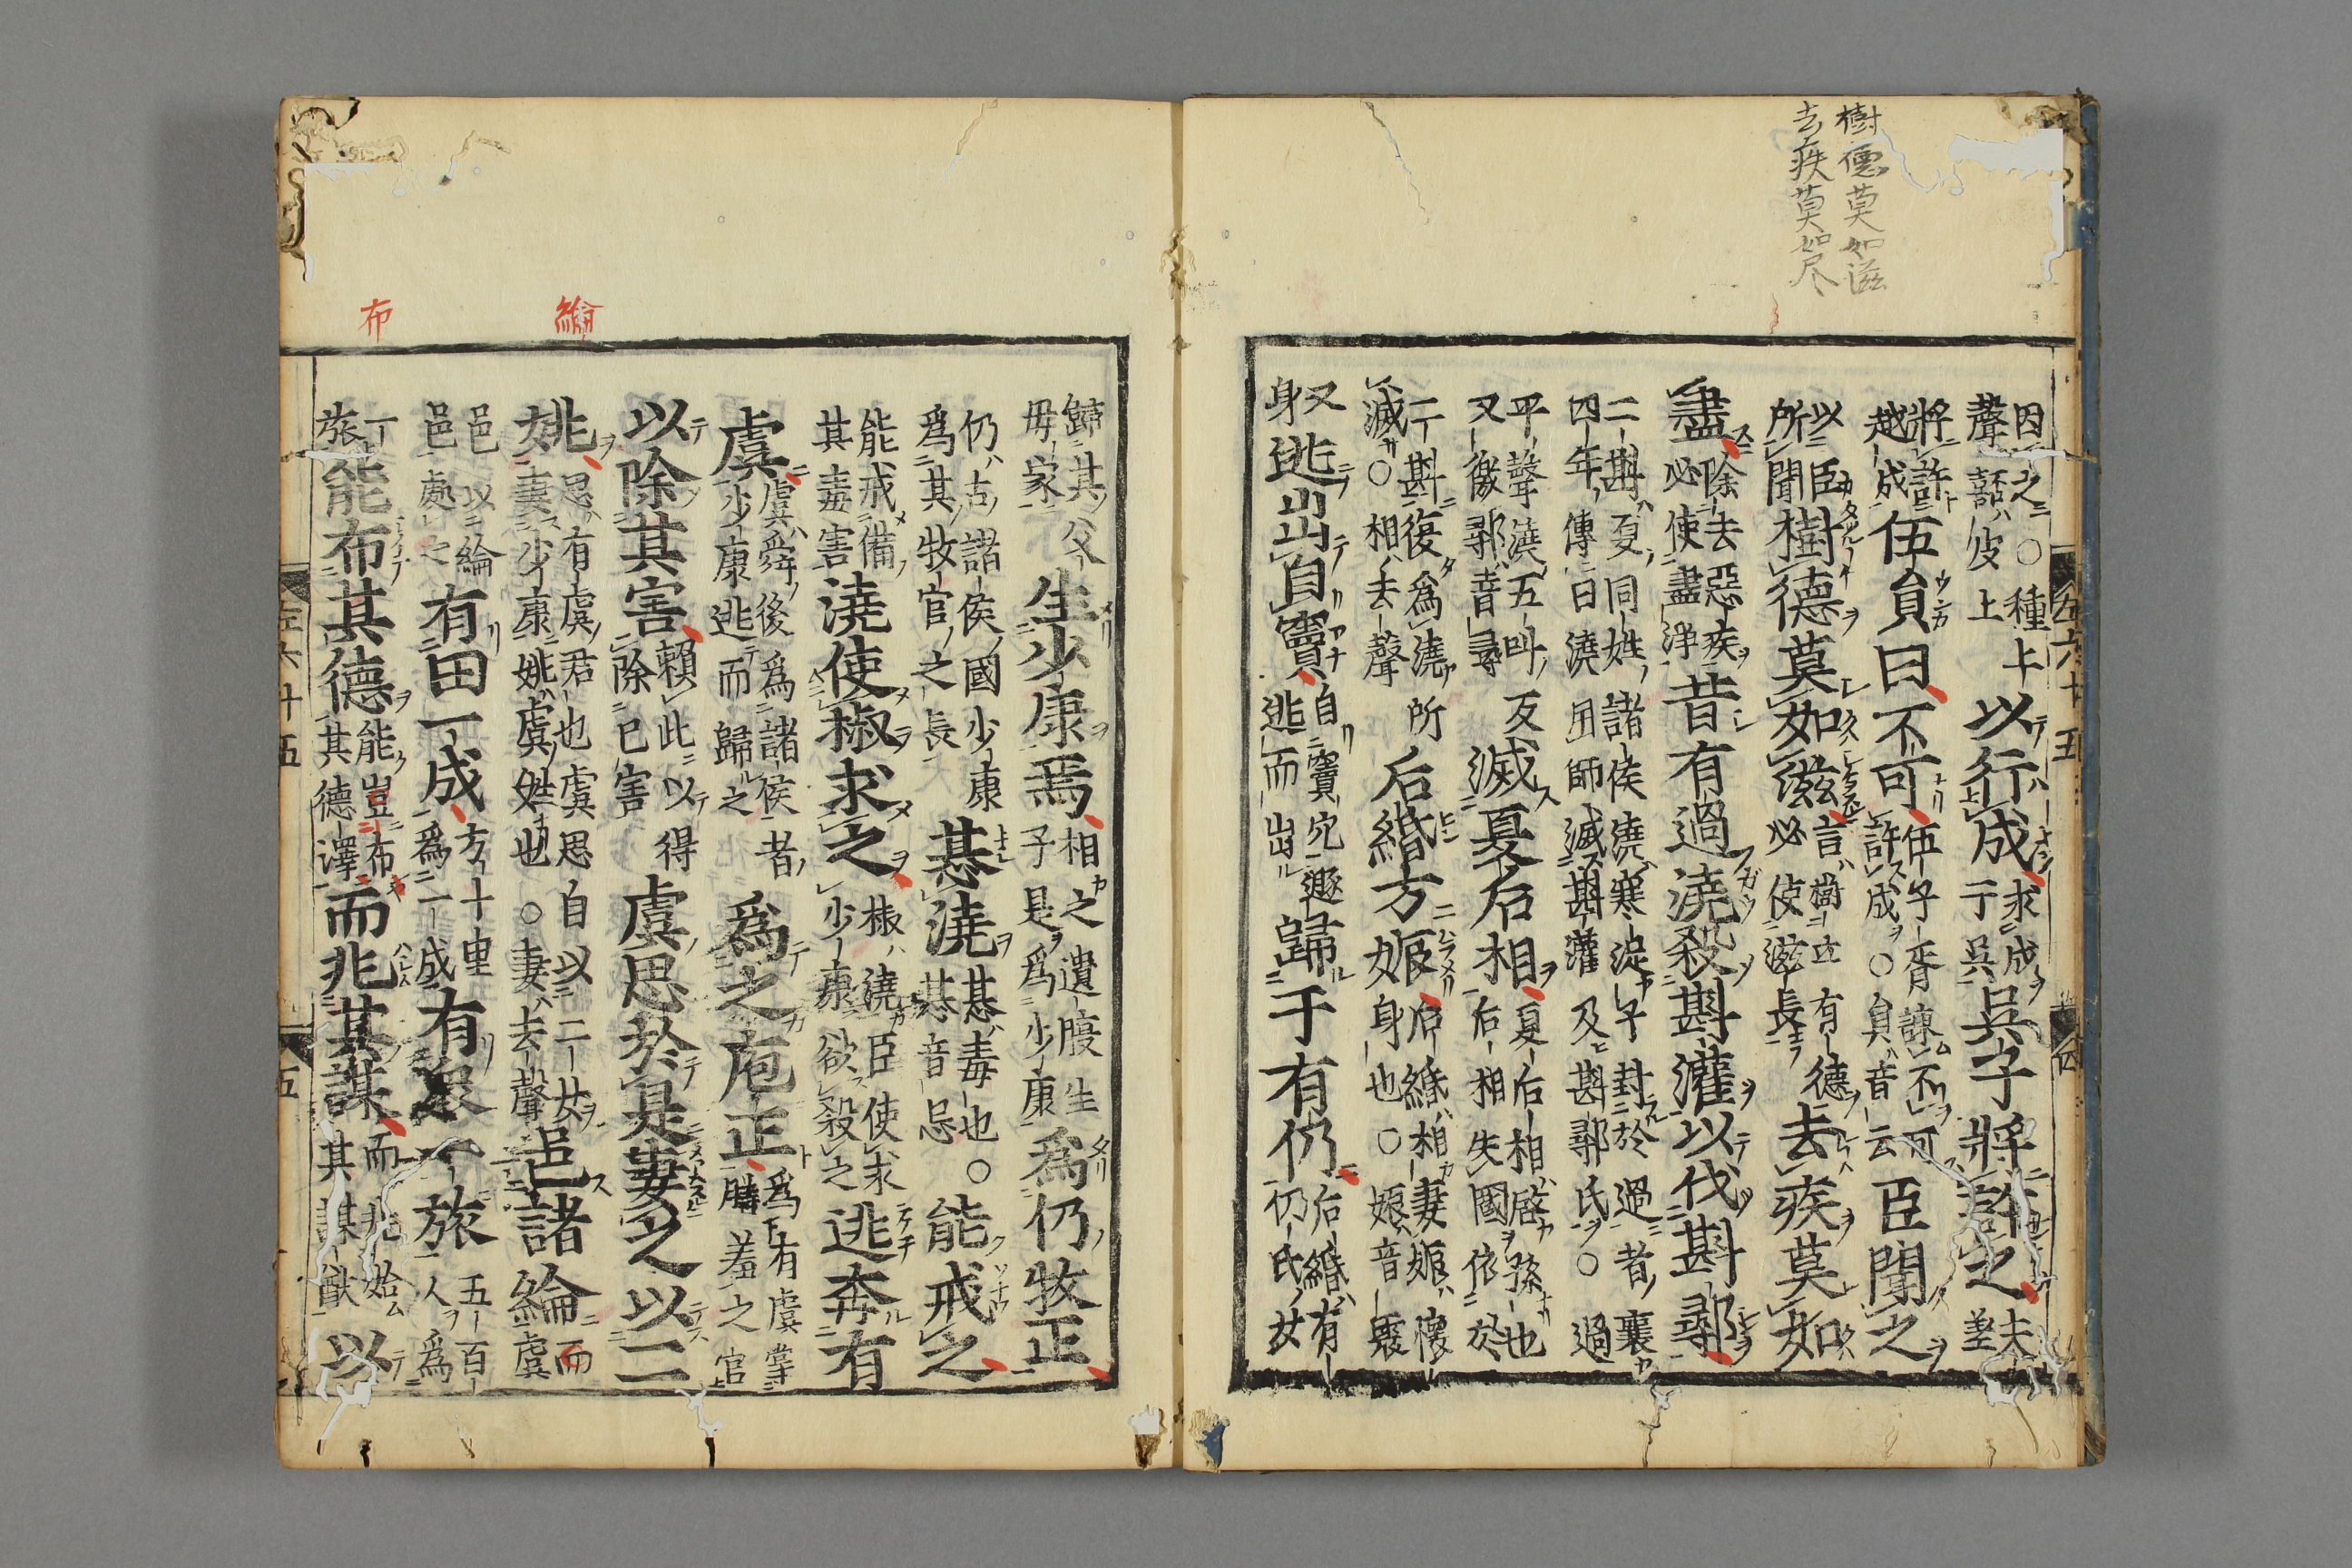 樹德莫如滋
去疾莫如尽
因之○種上聲嚭彼上以行成求成于吳吳子將許之夫差
將許越成伍員曰不可伍子胥諫不可許成○員音云臣聞之
以臣所聞樹德莫如滋言樹立有德必使滋長去疾莫如
盡除去惡疾必使盡淨昔有過澆殺斟灌以伐斟鄩
二斟夏同姓諸侯澆寒浞子封於過者襄四年傳曰澆用師滅斟灌及斟鄩氏○過
平聲澆五叫反又徼鄩音尋滅夏后相夏后相啓孫也后相失國依於
二斟復爲澆所滅○相去聲后緡方娠后緡相妻娠懷身也○娠音震
又身逃出自竇自竇穴遯逃而出歸于有仍后緡有仍氏女
左六十五
歸其父母家生少康焉相之遺腹生子是爲少康爲仍牧正
仍古諸侯國少康爲其牧官之長惎澆惎毒也○惎音忌能戒之
能戒備其毒害澆使椒求之椒澆臣使求少康欲殺之逃奔有
虞虞舜後爲諸侯者少康逃而歸之爲之庖正爲有虞掌膳羞之官
以除其害賴此以得除已害虞思於是妻之以二
綸
姚思有虞君也虞思自以二女妻少康姚虞姓也○妻去聲邑諸綸而虞
邑以綸邑處之有田一成方十里爲一成有眾一旅五百人爲
布
旅能布其德能豈布其德澤而兆其謀而兆始其謀猷以
左六十五
五